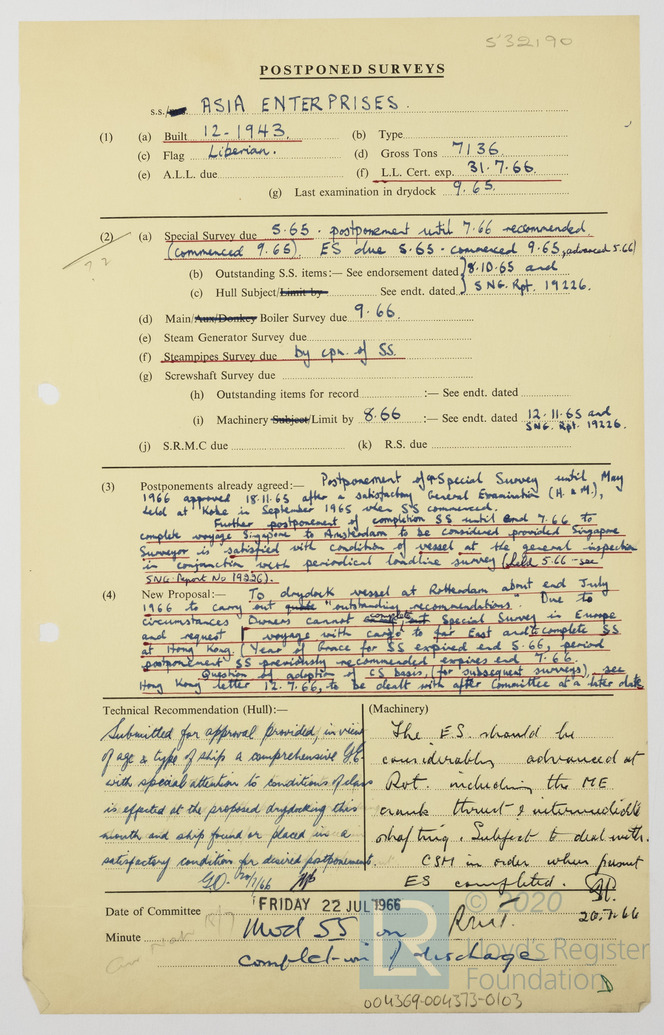 532190
POSTPONED SURVEYS
s.s./ ASIA ENTERPRISES.
(1) (a) Built 12-1943. (b) Type
(c) Flag Liberian. (d) Gross Tons 7136
(e) A.L.L. due (f) L.L. Cert. exp. 31.7.66.
(g) Last examination in drydock 9.65.
(2) (a) Special Survey due 5.65. postponement until 7.66 recommended.
(commenced 9.65). ES due 5.65. commenced 9.65, advanced 5.66)
??
(b) Outstanding S.S. items:— See endorsement dated 8.10.65 and
(c) Hull Subject/Limit by See endt. dated SNG. Rpt. 19226.
(d) Main/Aux/Donkey Boiler Survey due 9.66.
(e) Steam Generator Survey due
(f) Steampipes Survey due by cpn. of SS.
(g) Screwshaft Survey due
(h) Outstanding items for record :— See endt. dated
(i) Machinery Subject/Limit by 8.66 :— See endt. dated 12.11.65 and
SNG. Rpt. 19226.
(j) S.R.M.C due (k) R.S. due
(3) Postponements already agreed:— Postponement of Special Survey until May
1966 approved 18.11.65 after a satisfactory General Examination (H. & M.),
held at Kobe in September 1965 when SS commenced.
Further postponement of completion SS until end 7.66 to
complete voyage Singapore to Amsterdam to be considered provided Singapore
Surveyor is satisfied with condition of vessel at the general inspection
in conjunction with periodical loadline survey (held 5.66 - see
SNG. Report No 19226).
(4) New Proposal:— To drydock vessel at Rotterdam about end July
1966 to carry out "outstanding recommendations". Due to
circumstances Owners cannot complete Special Survey in Europe
and request voyage with cargo to far East and complete SS
at Hong Kong. (Year of Grace for SS expired end 5.66, period
postponement SS previously recommended expires end 7.66.
Question of adoption of CS basis, (for subsequent surveys), see
Hong Kong letter 12.7.66, to be dealt with after Committee at a later date
Technical Recommendation (Hull):— (Machinery)
Submitted for approval provided, in view
of age & type of ship a comprehensive G.E.
with special attention to conditions of class
is effected at the proposed drydocking this
month and ship found or placed in a
satisfactory condition for desired postponement.
20/7/66
The E.S. should be
considerably advanced at
Rot. including the ME
crank thrust & intermediate
shafting. Subject to deal with.
CSM in order when present
ES completed.
20.7.66
Date of Committee FRIDAY 22 JUL 1966
Minute
SS on
completion of discharge
© 2020
Lloyd's Register
Foundation
004369-004373-0103